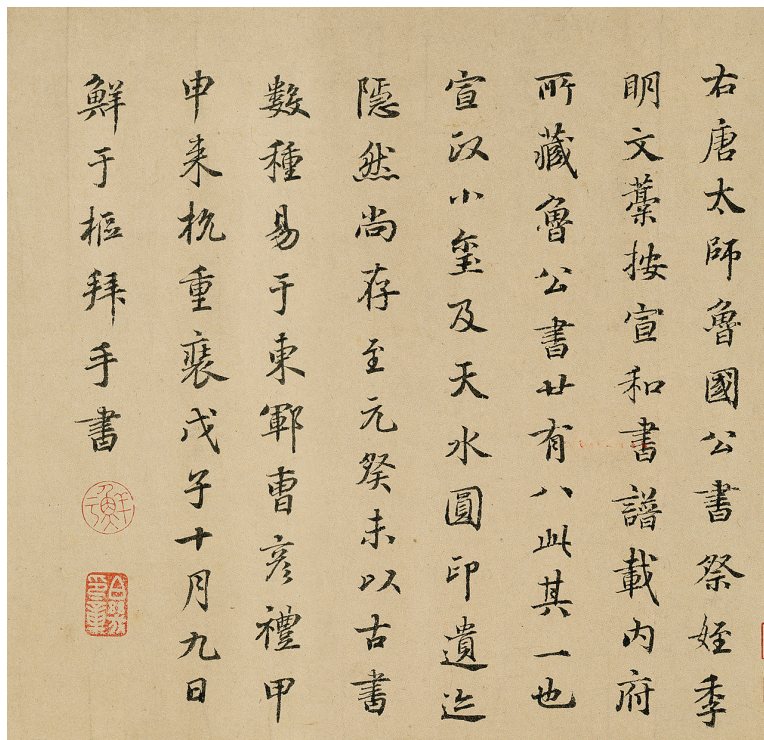 右唐太師魯國公書祭姪季
明文藁按宣和書譜載内府
所藏魯公書廿有八此其一也
宣政小璽及天水圓印遺迹
隱然尚存至元癸未以古書
數種易于東鄆曹彦禮甲
申来杭重裝戊子十月九日
鮮于樞拜手書
鮮于